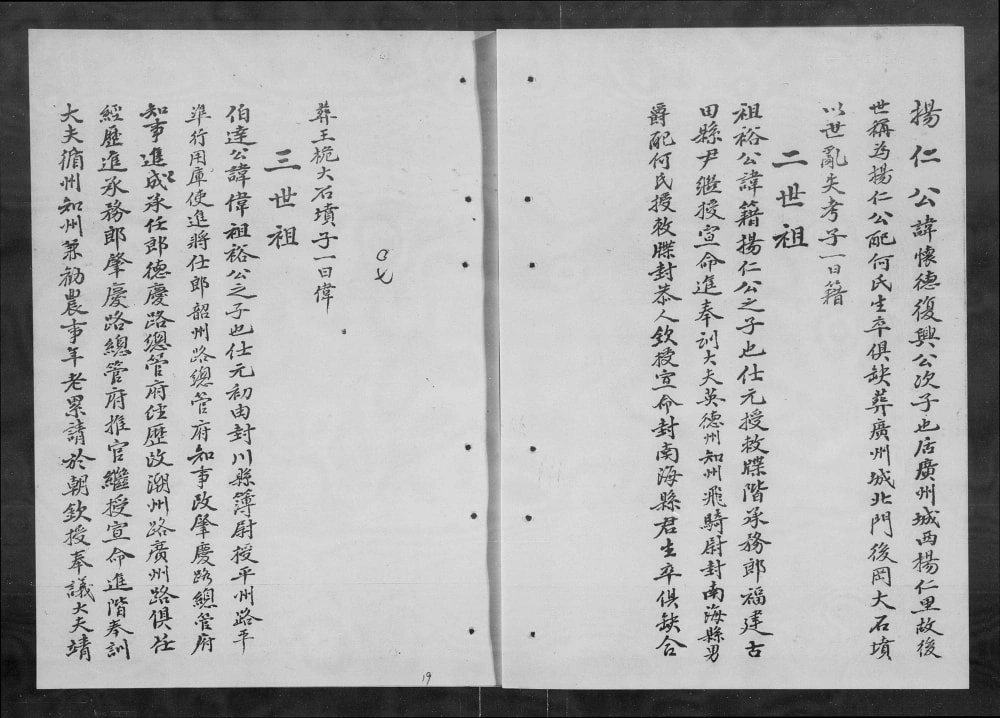 揚仁公諱懷德復興公次子也居廣州城西揚仁里故後
世稱為揚仁公配何氏生卒俱缺葬廣州城北門後岡大石墳
以世亂失考子一曰籍
二世祖
祖裕公諱籍揚仁公之子也仕元授敕牒階承務郎福建古
田縣尹繼授宣命進奉訓大夫英德州知州飛騎尉封南海縣男
爵配何氏授敕牒封恭人欽授宣命封南海縣君生卒俱缺合
葬王桅大石墳子一曰偉
三世祖
伯達公諱偉祖裕公之子也仕元初由封川縣簿尉授平州路平
準行用庫使進將仕郎韶州路總管府知事改肇慶路總管府
知事進成承任郎德慶路總管府住歷改潮州路廣州路俱任
經歷進承務郎肇慶路總管府推官繼授宣命進階奉訓
大夫循州知州兼勸農事年老累請於朝欽授奉議大夫靖
19